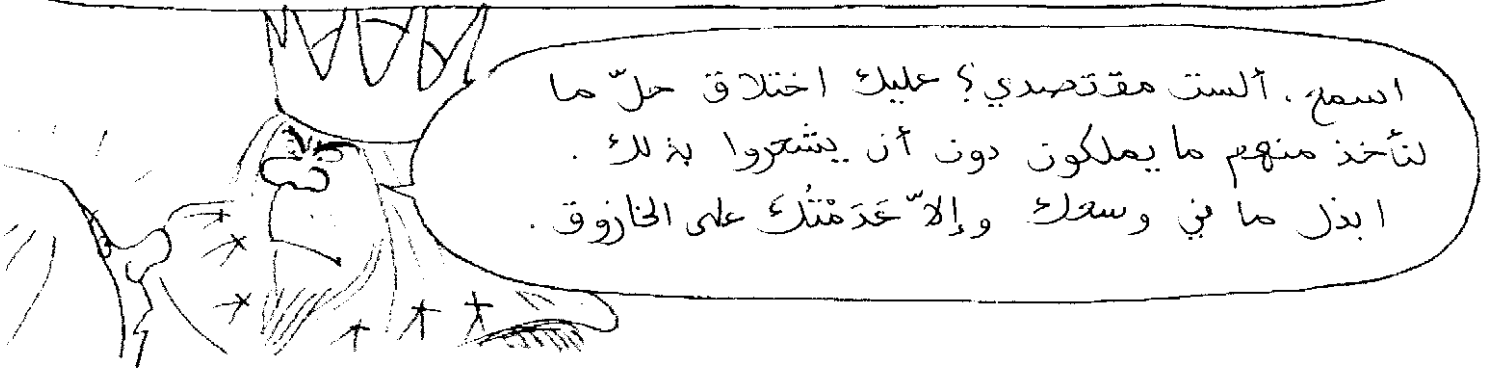 اسمع. ألست مقتصدي؟ عليك اختلاق حلّ ما
لنأخذ منهم ما يملكون دون أن يشعروا بذلك.
ابذل ما في وسعك وإلاّ عَدَمْتُكَ على الخازوق.